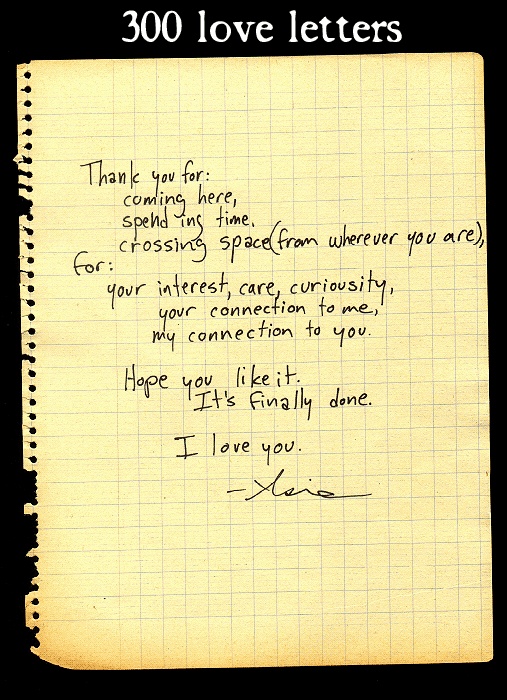 300 love letters
Thank you for:
coming here,
spending time,
crossing space (from wherever you are),
for:
your interest, care, curiousity,
your connection to me,
my connection to you.
Hope you like it.
It's finally done.
I love you.